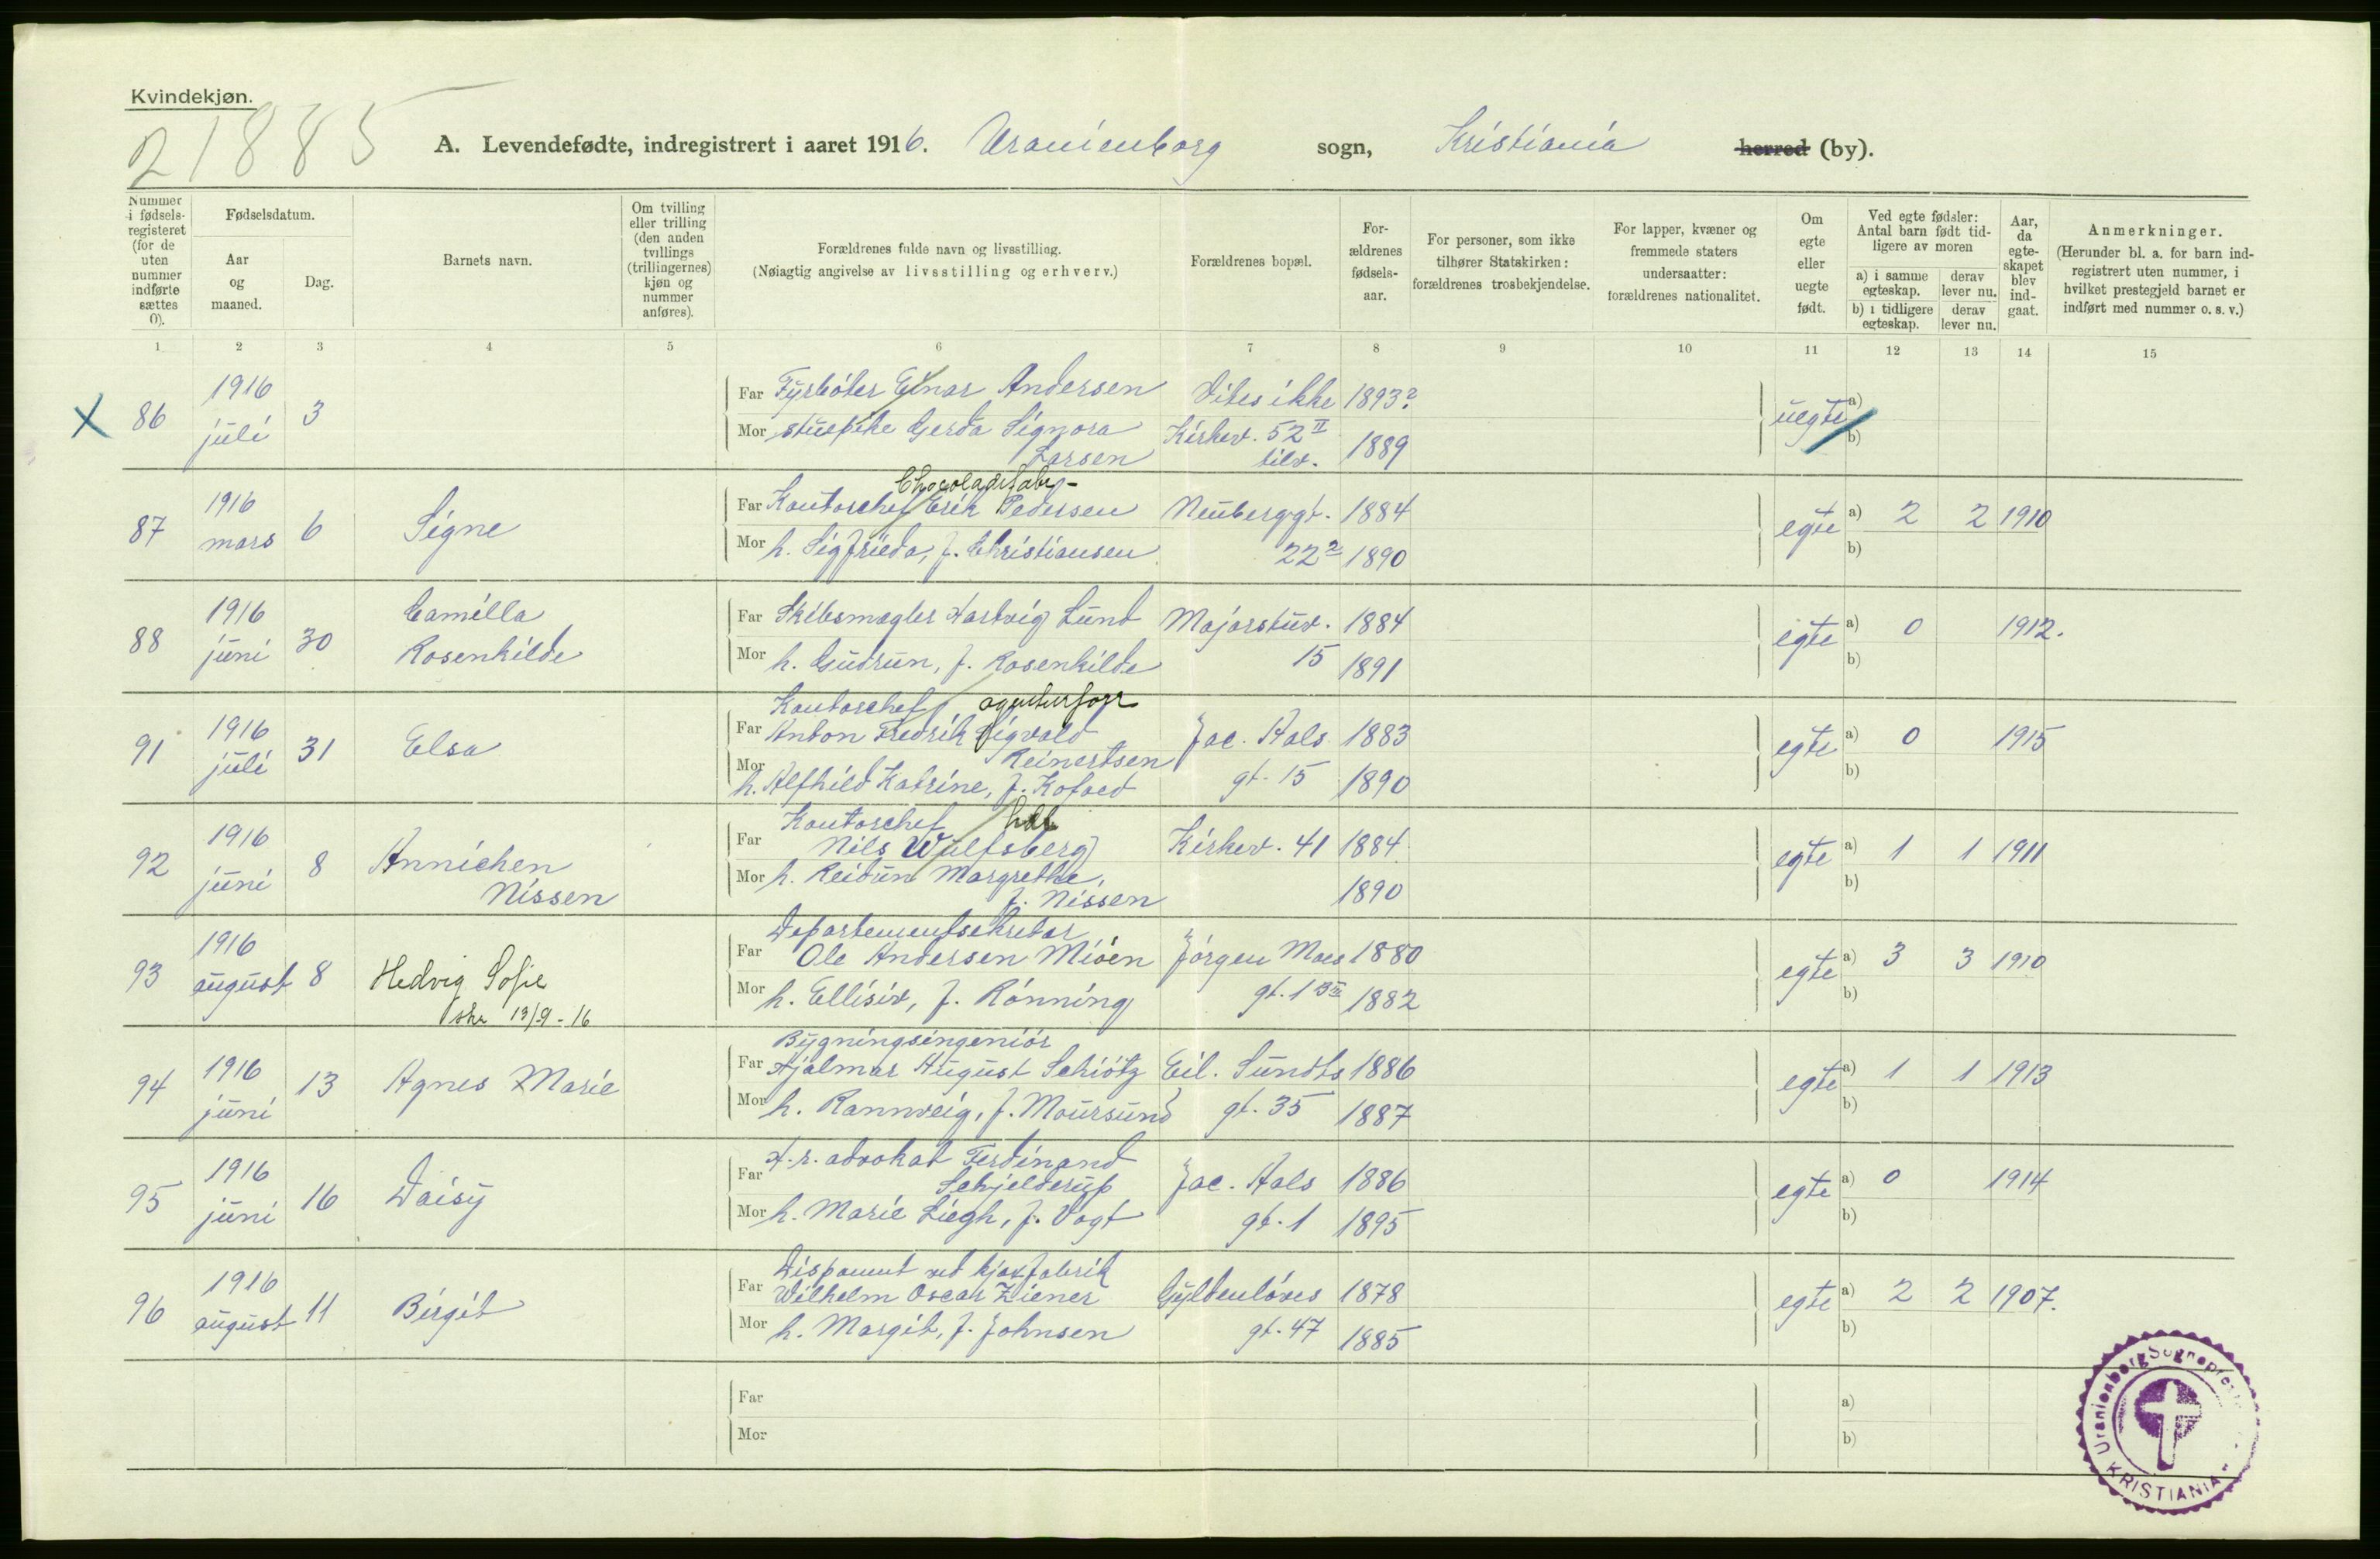 Kvindekjøn.
21885
A. Levendefødte, indregistrert i aaret 1916. Uranienborg sogn, Kristiania herred (by).
Nummer i fødselsregisteret (for de uten nummer indførte sættes 0).
Fødselsdatum.
Aar og maaned.
Dag.
Barnets navn.
Om tvilling eller trilling (den anden tvillings (trillingernes) kjøn og nummer anføres).
Forældrenes fulde navn og livsstilling.
(Nøiagtig angivelse av livsstilling og erhverv.)
Forældrenes bopæl.
Forældrenes fødselsaar.
For personer, som ikke tilhører Statskirken: forældrenes trosbekjendelse.
For lapper, kvæner og fremmede staters undersaatter: forældrenes nationalitet.
Om egte eller uegte født.
Ved egte fødsler: Antal barn født tidligere av moren
a) i samme egteskap. derav lever nu.
b) i tidligere egteskap. derav lever nu.
Aar, da egteskapet blev indgaat.
Anmerkninger.
(Herunder bl. a. for barn indregistrert uten nummer, i hvilket prestegjeld barnet er indført med nummer o. s. v.)
1 2 3 4 5 6 7 8 9 10 11 12 13 14 15
X 86 1916 juli 3
Far Fyrbøter Einar Andersen Vites ikke 1893?
Mor stuepike Gerda Signora Larsen Kirkev. 52 II tilv. 1889
uegte a) b)
87 1916 mars 6 Signe
Chocoladefabr-
Far Kontorchef Erik Pedersen Neuberggt. 1884
Mor h. Sigfrieda, f. Christiansen 22 2 1890
egte a) 2 2 1910
b)
88 1916 juni 30 Camilla Rosenkilde
Far Skibsmægler Hartvig Lund Majorstuv. 1884
Mor h. Gudrun, f. Rosenkilde 15 1891
egte a) 0 1912.
b)
91 1916 juli 31 Elsa
Kontorchef agenturforr
Far Anton Fredrik Sigvald Reinertsen Jac. Aals 1883
Mor h. Alfhild Katrine, f. Kofoed gt. 15 1890
egte a) 0 1915
b)
92 1916 juni 8 Annichen Nissen
Kontorchef
Far Nils Wulfsberg Kirkev. 41 1884
Mor h. Reidun Margrethe, f. Nissen 1890
egte a) 1 1 1911
b)
93 1916 august 8 Hedvig Sofie
skr 13/9-16
Departementsekretær
Far Ole Andersen Miøen Jørgen Moes 1880
Mor h. Ellisiv, f. Rønning gt. 13 III 1882
egte a) 3 3 1910
b)
94 1916 juni 13 Agnes Marie
Bygningsingeniør
Far Hjalmar August Schiøtz Eil. Sundts 1886
Mor h. Rannveig, f. Moursund gt. 35 1887
egte a) 1 1 1913
b)
95 1916 juni 16 Daisy
H.r. advokat Ferdinand
Far Schjelderup Jac. Aals 1886
Mor h. Marie Liegh, f. Vogt gt. 1 1895
egte a) 0 1914
b)
96 1916 august 11 Birgit
Disponent ved kjøxfabrik
Far Wilhelm Oscar Ziener Gyldenløves 1878
Mor h. Margit, f. Johnsen gt. 47 1885
egte a) 2 2 1907.
b)
Far
Mor
a)
b)
Uranienborg Sognepre
KRISTIANIA